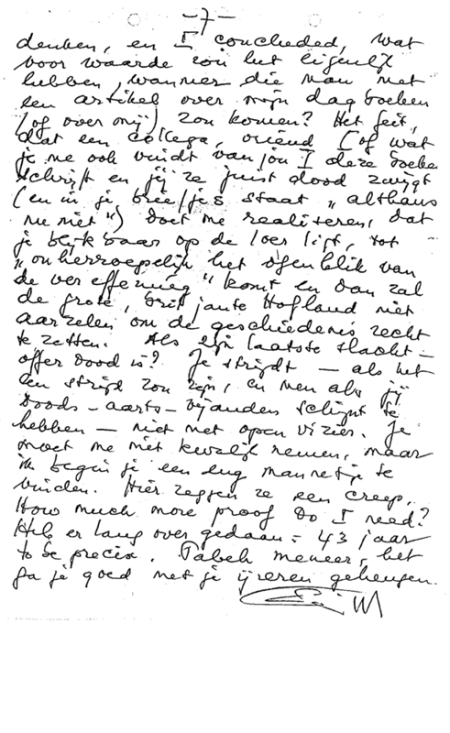 -7-
denken, en I concluded, wat
voor waarde zou het eigenlijk
hebben, wanneer die man met
een artikel over mijn dagboeken
(of over mij) zou komen? Het feit,
dat een collega, vriend (of wat
je me ook vindt van jou) deze boeken
schrijft en jij ze juist dood zwijgt
(en in je briefjes staat „althans
nu niet") doet me realiseren, dat
je blijkbaar op de loer ligt, tot
„onherroepelijk het ogenblik van
de vereffening" komt en dan zal
de grote, briljante Hofland niet
aarzelen om de geschiedenis recht
te zetten. Als zijn laatste slacht-
offer dood is? Je strijdt — als het
een strijd zou zijn, en men als jij
doods-aarts-vijanden schijnt te
hebben — niet met open vizier. Je
moet me niet kwalijk nemen, maar
ik begin je een eng mannetje te
vinden. Hier zeggen ze een creep.
How much more proof do I need?
Heb er lang over gedaan = 43 jaar
to be precise. Tabeh meneer, het
ga je goed met je ijzeren geheugen.